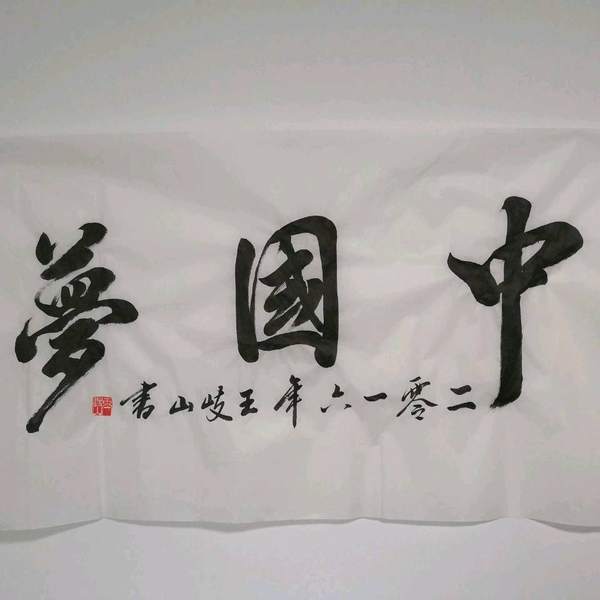 中國夢
二零一六年王岐山書